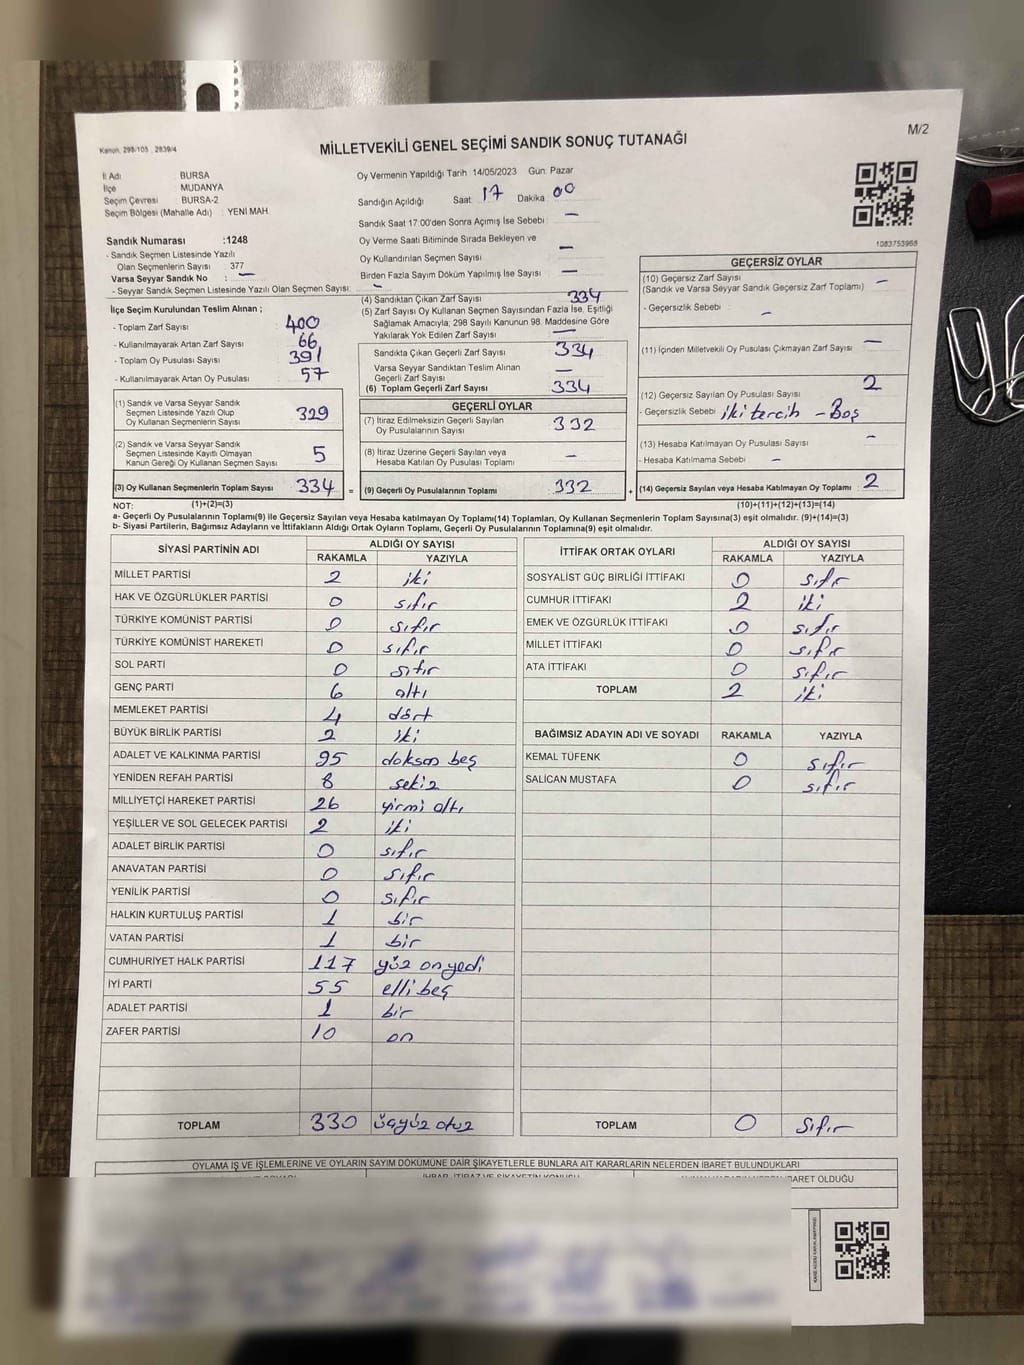 M/2
Kanun, 298/105 , 2839/4
MİLLETVEKİLİ GENEL SEÇİMİ SANDIK SONUÇ TUTANAĞI
İl Adı BURSA
İlçe MUDANYA
Seçim Çevresi BURSA-2
Seçim Bölgesi (Mahalle Adı) : YENİ MAH.
Sandık Numarası :1248
- Sandık Seçmen Listesinde Yazılı
Olan Seçmenlerin Sayısı : 377
Varsa Seyyar Sandık No : —
- Seyyar Sandık Seçmen Listesinde Yazılı Olan Seçmen Sayısı: -
Oy Vermenin Yapıldığı Tarih 14/05/2023 Gün: Pazar
Sandığın Açıldığı Saat: 17 Dakika: 00
Sandık Saat 17:00'den Sonra Açımış İse Sebebi : —
Oy Verme Saati Bitiminde Sırada Bekleyen ve
Oy Kullandırılan Seçmen Sayısı : —
Birden Fazla Sayım Döküm Yapılmış İse Sayısı : —
1083753968
İlçe Seçim Kurulundan Teslim Alınan ;
- Toplam Zarf Sayısı : 400
- Kullanılmayarak Artan Zarf Sayısı : 66
- Toplam Oy Pusulası Sayısı : 391
- Kullanılmayarak Artan Oy Pusulası : 57
(1) Sandık ve Varsa Seyyar Sandık
Seçmen Listesinde Yazılı Olup
Oy Kullanan Seçmenlerin Sayısı : 329
(2) Sandık ve Varsa Seyyar Sandık
Seçmen Listesinde Kayıtlı Olmayan
Kanun Gereği Oy Kullanan Seçmen Sayısı : 5
(3) Oy Kullanan Seçmenlerin Toplam Sayısı : 334 =
(4) Sandıktan Çıkan Zarf Sayısı : 334
(5) Zarf Sayısı Oy Kullanan Seçmen Sayısından Fazla İse, Eşitliği
Sağlamak Amacıyla, 298 Sayılı Kanunun 98. Maddesine Göre
Yakılarak Yok Edilen Zarf Sayısı : —
Sandıkta Çıkan Geçerli Zarf Sayısı : 334
Varsa Seyyar Sandıktan Teslim Alınan
Geçerli Zarf Sayısı : —
(6) Toplam Geçerli Zarf Sayısı : 334
GEÇERLİ OYLAR
(7) İtiraz Edilmeksizin Geçerli Sayılan
Oy Pusulalarının Sayısı : 332
(8) İtiraz Üzerine Geçerli Sayılan veya
Hesaba Katılan Oy Pusulası Toplamı : —
(9) Geçerli Oy Pusulalarının Toplamı : 332 +
GEÇERSİZ OYLAR
(10) Geçersiz Zarf Sayısı : —
(Sandık ve Varsa Seyyar Sandık Geçersiz Zarf Toplamı)
- Geçersizlik Sebebi : —
(11) İçinden Milletvekili Oy Pusulası Çıkmayan Zarf Sayısı : —
(12) Geçersiz Sayılan Oy Pusulası Sayısı : 2
- Geçersizlik Sebebi : iki tercih - Boş
(13) Hesaba Katılmayan Oy Pusulası Sayısı : —
- Hesaba Katılmama Sebebi : —
(14) Geçersiz Sayılan veya Hesaba Katılmayan Oy Toplamı : 2
NOT: (1)+(2)=(3) (10)+(11)+(12)+(13)=(14)
a- Geçerli Oy Pusulalarının Toplamı(9) ile Geçersiz Sayılan veya Hesaba katılmayan Oy Toplamı(14) Toplamları, Oy Kullanan Seçmenlerin Toplam Sayısına(3) eşit olmalıdır. (9)+(14)=(3)
b- Siyasi Partilerin, Bağımsız Adayların ve İttifakların Aldığı Ortak Oyların Toplamı, Geçerli Oy Pusulalarının Toplamına(9) eşit olmalıdır.
SİYASİ PARTİNİN ADI ALDIĞI OY SAYISI
RAKAMLA YAZIYLA
MİLLET PARTİSİ 2 iki
HAK VE ÖZGÜRLÜKLER PARTİSİ 0 sıfır
TÜRKİYE KOMÜNİST PARTİSİ 0 sıfır
TÜRKİYE KOMÜNİST HAREKETİ 0 sıfır
SOL PARTİ 0 sıfır
GENÇ PARTİ 6 altı
MEMLEKET PARTİSİ 4 dört
BÜYÜK BİRLİK PARTİSİ 2 iki
ADALET VE KALKINMA PARTİSİ 95 doksan beş
YENİDEN REFAH PARTİSİ 8 sekiz
MİLLİYETÇİ HAREKET PARTİSİ 26 yirmi altı
YEŞİLLER VE SOL GELECEK PARTİSİ 2 iki
ADALET BİRLİK PARTİSİ 0 sıfır
ANAVATAN PARTİSİ 0 sıfır
YENİLİK PARTİSİ 0 sıfır
HALKIN KURTULUŞ PARTİSİ 1 bir
VATAN PARTİSİ 1 bir
CUMHURİYET HALK PARTİSİ 117 yüz on yedi
İYİ PARTİ 55 elli beş
ADALET PARTİSİ 1 bir
ZAFER PARTİSİ 10 on
TOPLAM 330 üçyüz otuz
İTTİFAK ORTAK OYLARI ALDIĞI OY SAYISI
RAKAMLA YAZIYLA
SOSYALİST GÜÇ BİRLİĞİ İTTİFAKI 0 sıfır
CUMHUR İTTİFAKI 2 iki
EMEK VE ÖZGÜRLÜK İTTİFAKI 0 sıfır
MİLLET İTTİFAKI 0 sıfır
ATA İTTİFAKI 0 sıfır
TOPLAM 2 iki
BAĞIMSIZ ADAYIN ADI VE SOYADI RAKAMLA YAZIYLA
KEMAL TÜFENK 0 sıfır
SALİCAN MUSTAFA 0 sıfır
TOPLAM 0 Sıfır
OYLAMA İŞ VE İŞLEMLERİNE VE OYLARIN SAYIM DÖKÜMÜNE DAİR ŞİKAYETLERLE BUNLARA AİT KARARLARIN NELERDEN İBARET BULUNDUKLARI
İHBAR, İTİRAZ VE ŞİKAYETİN KONUSU
İBARET OLDUĞU